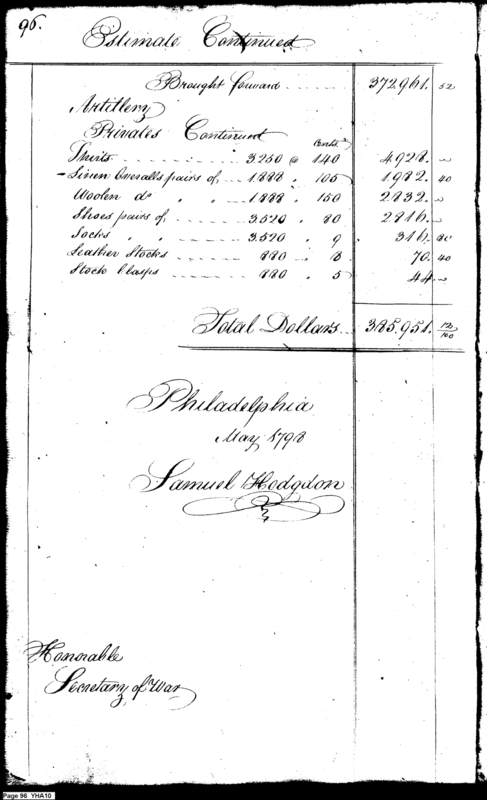 96.
Estimate Continued
Brought forward 372961. 52
Artillery
Privates Continued
Cents
Shirts 3250 @ 140 4928. "
Linen Overalls pairs of 1888 " 105 1982. 40
Woolen do " " 1888 " 150 2832. "
Shoes pairs of 3520 " 80 2816. "
Socks " " 3520 " 9 316. 80
Leather Stocks 880 " 8 70. 40
Stock Clasps 880 " 5 44 "
Total Dollars 385.951. 12/100
Philadelphia
May 1798
Samuel Hodgdon
Honorable
Secretary of War
Page 96 YHA10